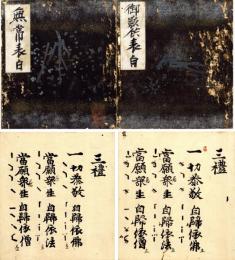 御影供表白
無常表白
三禮
一切恭敬 自歸依佛
當願衆生 自歸依法
當願衆生 自歸依僧
三禮
一切恭敬 自歸依佛
當願衆生 自歸依法
當願衆生 自歸依僧